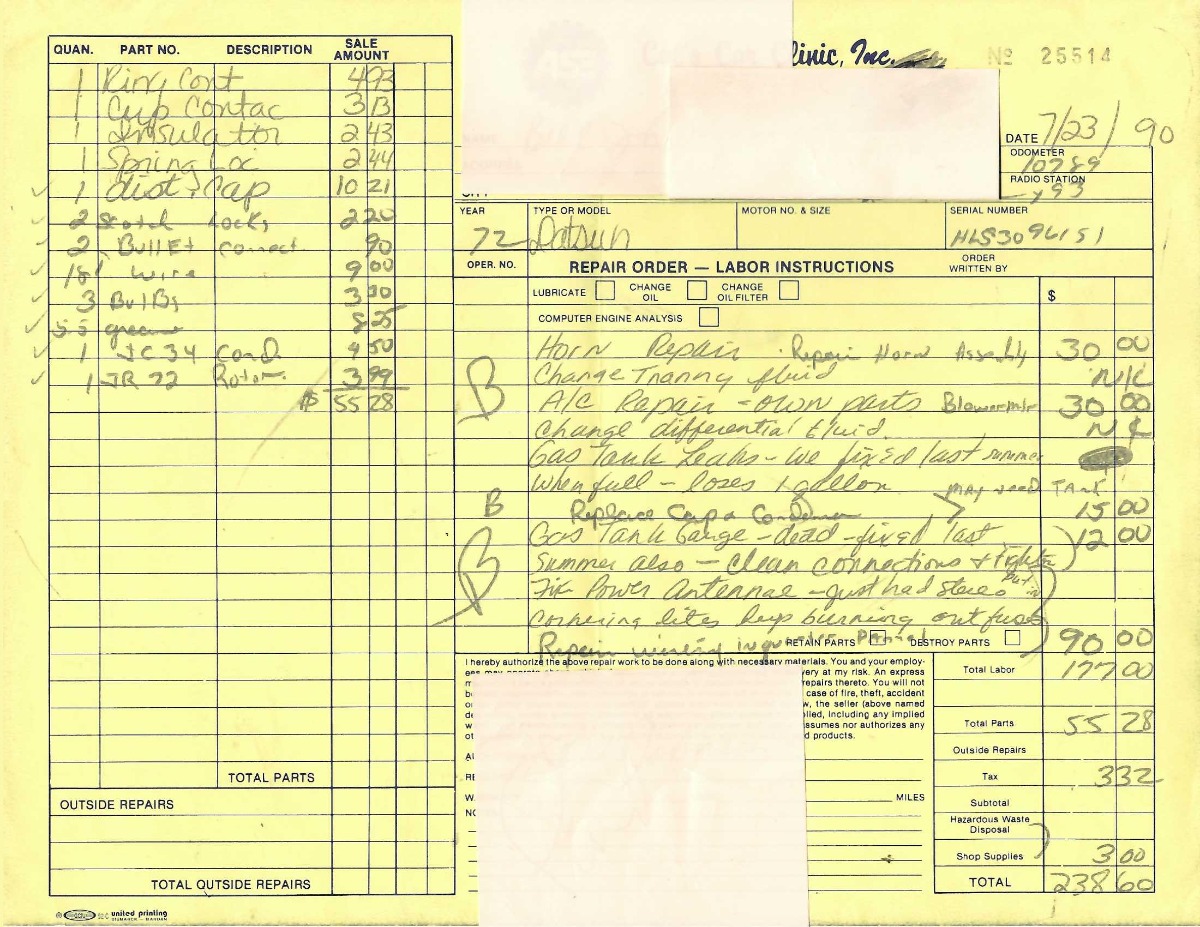 QUAN. PART NO. DESCRIPTION SALE AMOUNT
1 Ring Cont 4 93
1 Cup Contac 3 13
1 Insulator 2 43
1 Spring Loc 2 44
1 dist. Cap 10 21
2 Scotch locks 2 20
2 Bullet connect. 90
18' wire 9 00
3 Bulbs 3 30
5.5 grease 8 25
1 JC34 Cond. 4 50
1 JR 72 Rotor 3 99
$ 55 28
TOTAL PARTS
OUTSIDE REPAIRS
TOTAL OUTSIDE REPAIRS
united printing
BISMARCK - MANDAN
linic, Inc.
No 25514
DATE 7/23/90
ODOMETER
10789
RADIO STATION
Y93
YEAR
72
TYPE OR MODEL
Datsun
MOTOR NO. & SIZE
SERIAL NUMBER
HLS3096151
OPER. NO. REPAIR ORDER — LABOR INSTRUCTIONS
ORDER WRITTEN BY
LUBRICATE CHANGE OIL CHANGE OIL FILTER $
COMPUTER ENGINE ANALYSIS
Horn Repair - Repair Horn Assembly 30 00
B Change Tranny fluid N/C
A/C Repair - own parts Blower mtr 30 00
Change differential fluid N C
Gas Tank Leaks - we fixed last summer
When full - loses 1 gallon may need TANK
B Replace Cap & Condenser 15 00
Gas Tank Gauge - dead - fixed last 12 00
B Summer also - Clean connections & tighten
Fix Power Antennae - just had Stereo put in
Cornering lites keep burning out fuses
Repair wiring in quarter panel 90 00
RETAIN PARTS DESTROY PARTS
I hereby authorize the above repair work to be done along with necessary materials. You and your employ-
very at my risk. An express
repairs thereto. You will not
case of fire, theft, accident
w, the seller (above named
lied, including any implied
ssumes nor authorizes any
d products.
MILES
Total Labor 177 00
Total Parts 55 28
Outside Repairs
Tax 3 32
Subtotal
Hazardous Waste Disposal
Shop Supplies 3 00
TOTAL 238 60